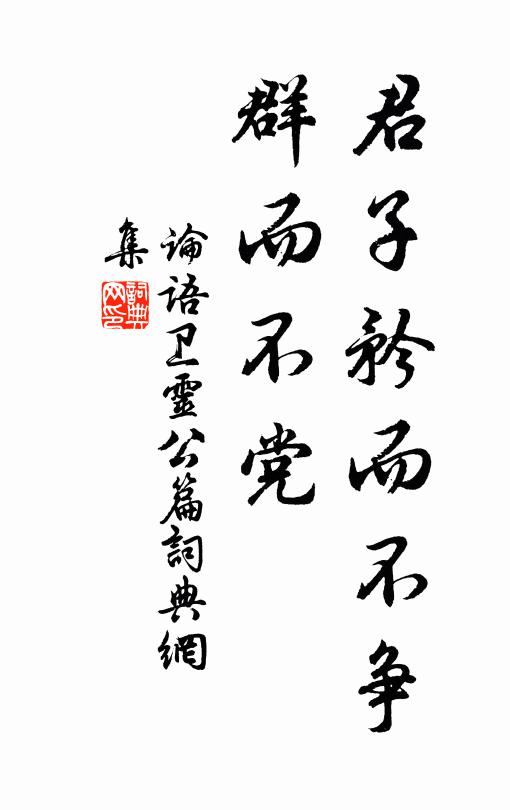 君子矜而不争
群而不党
論语卫靈公篇詞典網
集
詞典
网印